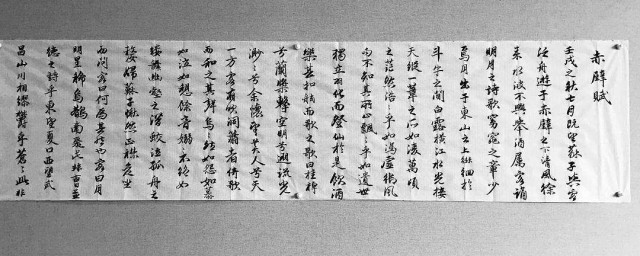 赤壁賦
壬戌之秋七月既望蘇子與客
泛舟遊于赤壁之下清風徐
來水波不興舉酒屬客誦
明月之詩歌窈窕之章少
焉月出于東山之上徘徊於
斗牛之間白露橫江水光接
天縱一葦之所如凌萬頃
之茫然浩々乎如馮虛御風
而不知其所止飄々乎如遺世
獨立羽化而登仙於是飲酒
樂甚扣舷而歌之歌曰桂棹
兮蘭槳擊空明兮遡流光
渺々兮余懷望美人兮天
一方客有吹洞簫者倚歌
而和之其聲嗚々然如怨如慕
如泣如訴餘音嫋々不絕如
縷舞幽壑之潛蛟泣孤舟之
嫠婦蘇子愀然正襟危坐
而問客曰何為其然也客曰月
明星稀烏鵲南飛此非曹孟
德之詩乎東望夏口西望武
昌山川相繆鬱乎蒼々此非